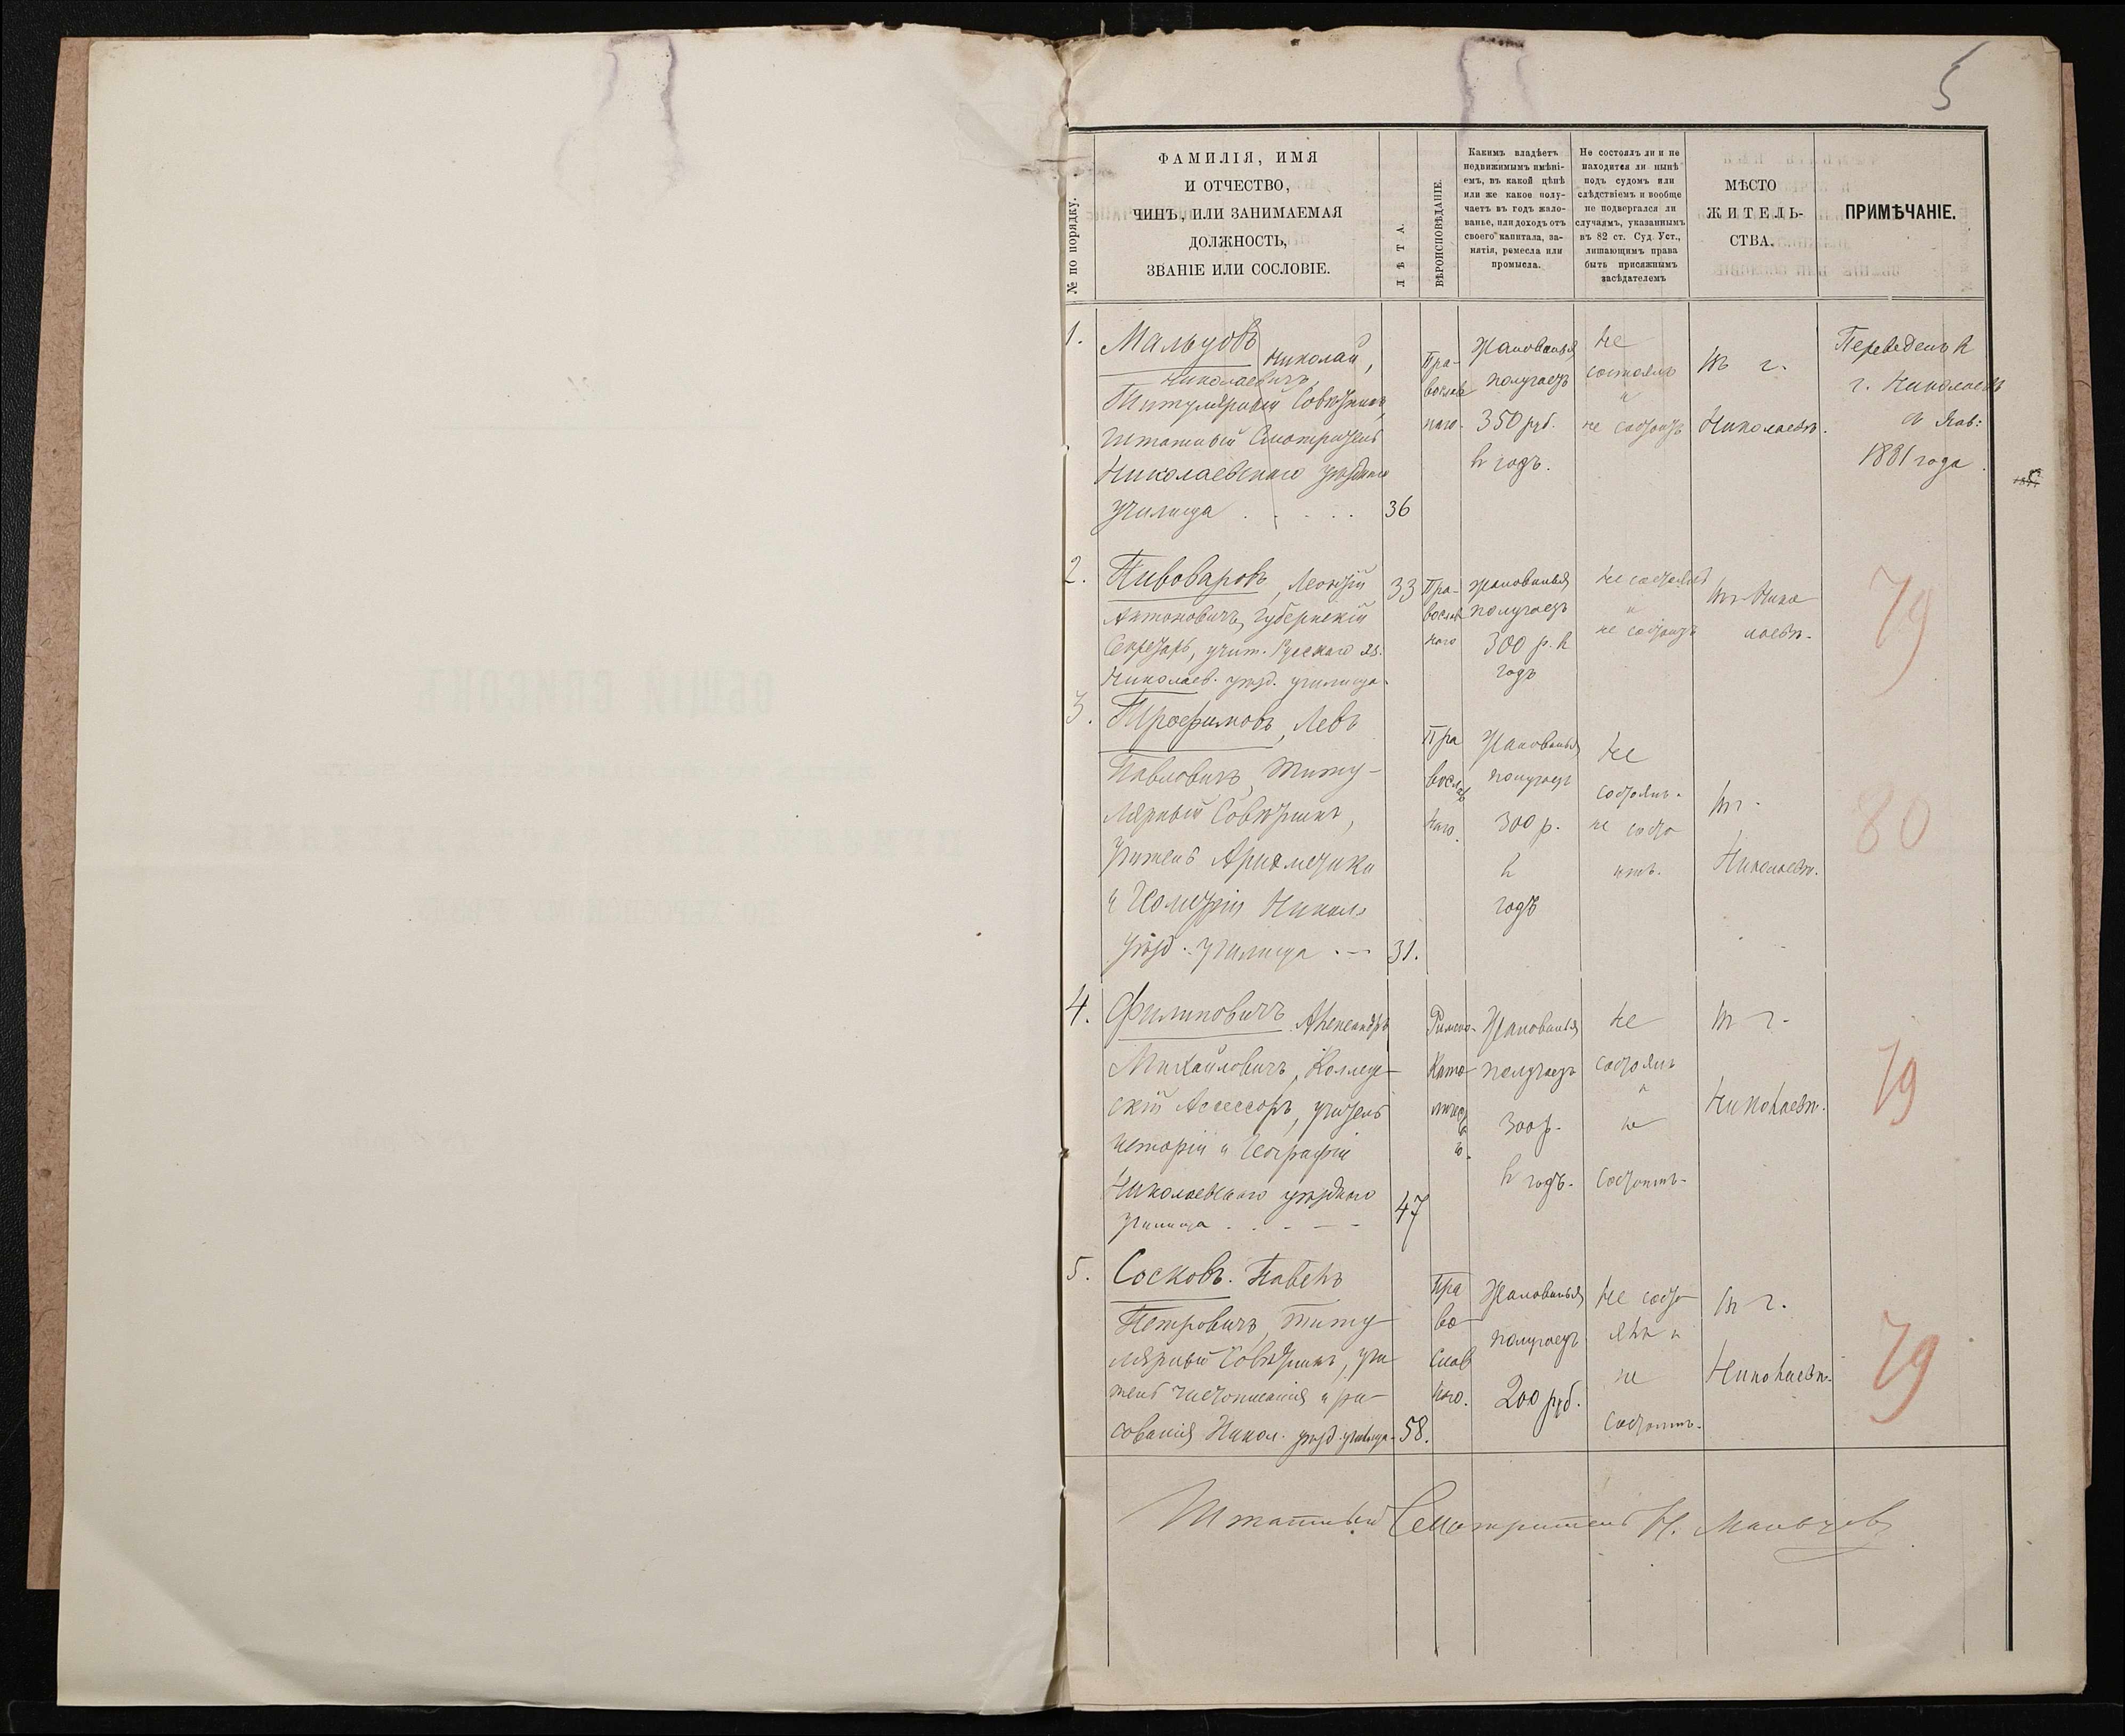 5
№ по порядку.
ФАМИЛІЯ, ИМЯ
И ОТЧЕСТВО,
ЧИНЪ, ИЛИ ЗАНИМАЕМАЯ
ДОЛЖНОСТЬ,
ЗВАНІЕ ИЛИ СОСЛОВІЕ.
ЛѢТА.
ВѢРОИСПОВѢДАНІЕ.
Какимъ владѣетъ
недвижимымъ имѣні-
емъ, въ какой цѣнѣ
или же какое полу-
чаетъ въ годъ жало-
ванье, или доходъ отъ
своего капитала, за-
нятія, ремесла или
промысла.
Не состоялъ ли и не
находится ли нынѣ
подъ судомъ или
слѣдствіемъ и вообще
не подвергался ли
случаямъ, указаннымъ
въ 82 ст. Суд. Уст.,
лишающимъ права
быть присяжнымъ
засѣдателемъ
МѢСТО
ЖИТЕЛЬ-
СТВА.
ПРИМѢЧАНІЕ.
1.
Мальцовъ Николай,
Николаевичъ,
Титулярный Совѣтникъ,
Штатный Смотритель
Николаевскаго уѣзднаго
училища . . . . .
36
Пра-
вослав
наго.
Жалованья
получаетъ
350 руб.
въ годъ.
Не
состоялъ
и
не состоитъ
Въ г.
Николаевѣ.
Переведенъ въ
г. Николаевъ
1881 года
2.
Пивоваровъ, Леонтій
Антоновичъ, Губернскій
Секретарь, учит. Русскаго яз.
Николаев. уѣзд. училища.
33
Пра-
вослав
наго
Жалованья
получаетъ
300 р. въ
годъ
Не состоялъ
и
не состоитъ
Въ г. Нико
лаевѣ.
79
3.
Трофимовъ, Левъ
Павловичъ, Титу-
лярный Совѣтникъ,
Учитель Ариѳметики
и Геометріи Никол.
уѣзд. училища . —
31.
Пра
вослав
наго.
Жалованья
получаетъ
300 р.
въ
годъ
Не
состоялъ.
не состо
итъ.
Въ г.
Николаевѣ.
80
4.
Филиповичъ Александръ
Михайловичъ, Коллеж-
скій Ассессоръ, учитель
исторіи и Географіи
Николаевскаго уѣзднаго
училища . . . — —
47
Римско-
Като-
лическ
Жалованья
получаетъ
300 р.
въ годъ.
Не
состоялъ
и
не
состоитъ.
Въ г.
Николаевѣ.
79
5.
Сосковъ. Павелъ
Петровичъ, Титу-
лярный Совѣтникъ, учи
тель чистописанія и ри-
сованія Никол. уѣзд. училища.
58.
Пра
во-
слав
наго.
Жалованья
получаетъ
200 руб.
Не состо-
ялъ и
не
состоитъ.
Въ г.
Николаевѣ.
79
Штатный Смотритель Н. Мальцовъ